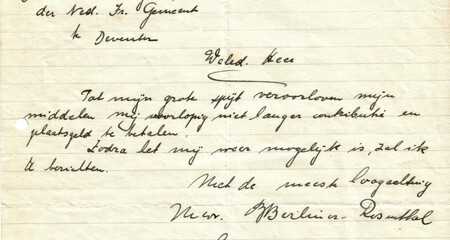 der Ned. Isr. Gemeent
te Deventer
Weled. Heer
Tot mijn grote spijt veroorloven mijn
middelen mij voorlopig niet langer contributie en
plaatsgeld te betalen.
Zodra het mij weer mogelijk is, zal ik
U berichten.
Met de meeste hoogachting
Mevr. Berliner-Rosenthal